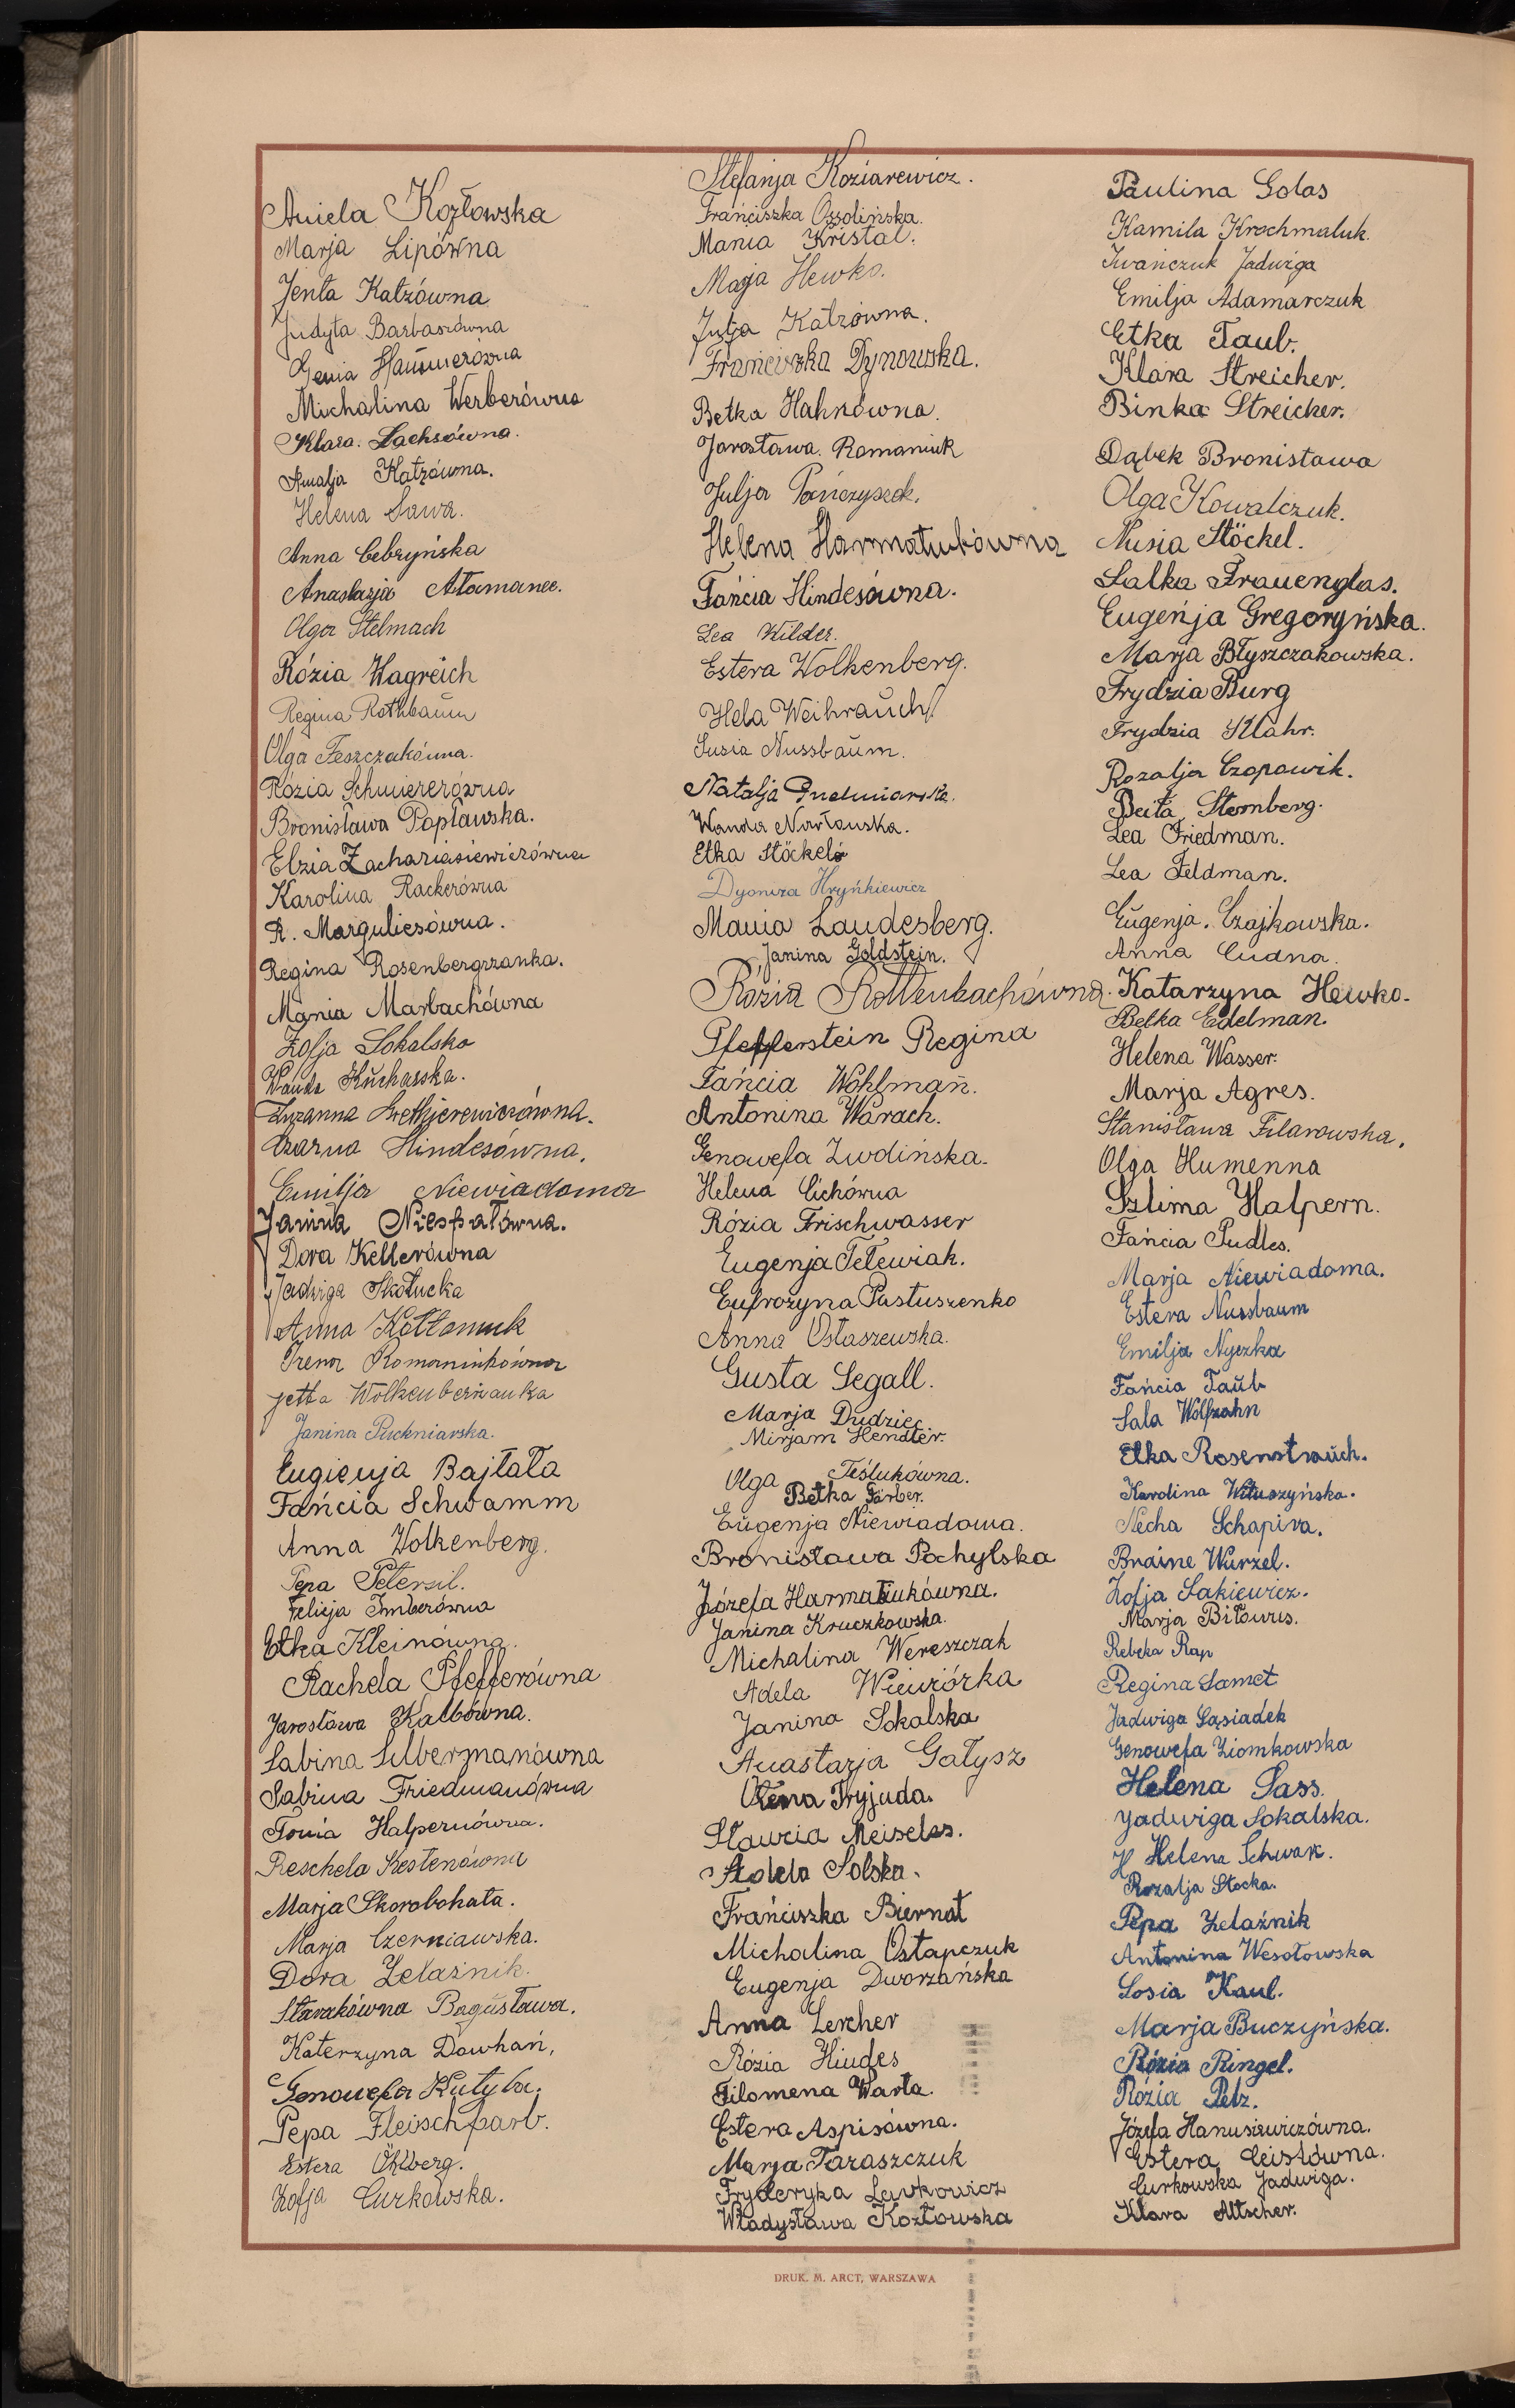 Aniela Kozłowska
Marja Lipówna
Jenta Katzówna
Judyta Barbaszówna
Genia Hammerówna
Michalina Werberówna
Klara. Sachsówna.
Amalja Katzówna.
Helena Sawa.
Anna Cebryńska
Anastazja Atamanec.
Olga Stelmach
Rózia Hagreich
Regina Rothbaum
Olga Feszczakówna.
Rózia Schmiererówna
Bronisława Popławska.
Elzia Zachariasiewiczówna
Karolina Rackerówna
R. Marguliesówna.
Regina Rosenbergrzanka.
Mania Marbachówna
Zofja Sokalska
Wanda Kucharska.
Zuzanna
Czarna Hindesówna.
Emilja Niewiadoma
Janina Niespałówna.
Dora Kellerówna
Jadwiga Skołucka
Anna Kotłomuk
Irena Romaniukówna
Jetta Wolkenbernanka
Janina Puckniarska.
Eugienja Bajtała
Fańcia Schwamm
Anna Wolkenberg.
Pepa Petersil.
Felicja Imberówna
Etka Kleinówna.
Rachela Pfefferówna
Jarosława Kalbówna.
Sabina Silbermanówna
Sabina Friedmanówna
Tonia Halpernówna.
Reschela Kestenówna
Marja Skorobohata.
Marja Czerniawska.
Dora Zelaźnik.
Starakówna Bogusława.
Katerzyna Dowhań,
Genowefa Kutyba.
Pepa Fleischfarb.
Estera Öhlberg.
Zofja Curkowska.
Stefanja Koziarewicz.
Frańciszka Ossolińska.
Mania Kristal.
Marja Hewko.
Jutja Katzówna.
Frańciszka Dynowska.
Betka Hahnówna.
Jarosława. Romaniuk
Julja Pańczyszek.
Helena Harmatiukówna
Fańcia Hindesówna.
Lea Kilder.
Estera Wolkenberg.
Hela Weihrauch.
Susia Nussbaum.
Natalja
Wanda Narłowska.
Etka Stöckel
Dyoniza Hryńkiewicz
Mania Landesberg.
Janina Goldstein.
Rózia Rottenbachówna.
Pfefferstein Regina
Fańcia Wohlman.
Antonina Warach.
Genowefa Zwdińska.
Helena Cichówna
Rózia Frischwasser
Eugenja Telewiak.
Eufrozyna Pastuszenko
Anna Ostaszewska.
Gusta Segall.
Marja Dudziec.
Mirjam Hendler.
Olga Teślukówna.
Betka Färber.
Eugenja Niewiadoma.
Bronisława Pochylska
Józefa Harmatiukówna.
Janina Kruczkowska.
Michalina Wereszczak
Adela Wiewiórka
Janina Sokalska
Anastazja Gałysz
Olena Tryjuda.
Sławcia Meiseles.
Adela Solska.
Frańciszka Biernat
Michalina Ostapczuk
Eugenja Dworzańska
Anna Lercher
Rózia Hindes
Filomena Warta.
Estera Aspisówna.
Marja Taraszczuk
Fryderyka Lewkowicz
Władysława Kozłowska
Paulina Golas
Kamila Krochmaluk.
Iwańczuk Jadwiga
Emilja Adamarczuk
Etka Taub.
Klara Streicher.
Binka Streicher.
Dąbek Bronisława
Olga Kowalczuk.
Nusia Stöckel.
Salka Frauenglas.
Eugenja Gregoryńska.
Marja Błyszczakowska.
Frydzia Burg
Frydzia Klahr.
Rozalja Czopowik.
Beita Sternberg.
Lea Friedman.
Lea Feldman.
Eugenja. Czajkowska.
Anna Cudna.
Katarzyna Hewko.
Betka Edelman.
Helena Wasser.
Marja Agres.
Stanisława Filarowska.
Olga Humenna
Szlima Halpern.
Fańcia Pudles.
Marja Niewiadoma.
Estera Nussbaum
Emilja Nyczka
Fańcia Taub
Sala Wolfzahn
Etka Rosenstrauch.
Karolina Wituszyńska.
Necha Schapira.
Braine Wurzel.
Zofja Sakiewicz.
Marja Biłowus.
Rebeka Rap
Regina Samet
Jadwiga Sąsiadek
Genowefa Ziomkowska
Helena Sass.
Jadwiga Sokalska.
H Helena Schwarz.
Rozalja Stocka.
Pepa Zelaźnik
Antonina Wesołowska
Sosia Kaul.
Marja Buczyńska.
Rózia Ringel.
Rózia Pelz.
Józefa Hanusiewiczówna.
Estera Ceislówna.
Curkowska Jadwiga.
Klara Altscher.
DRUK. M. ARCT, WARSZAWA